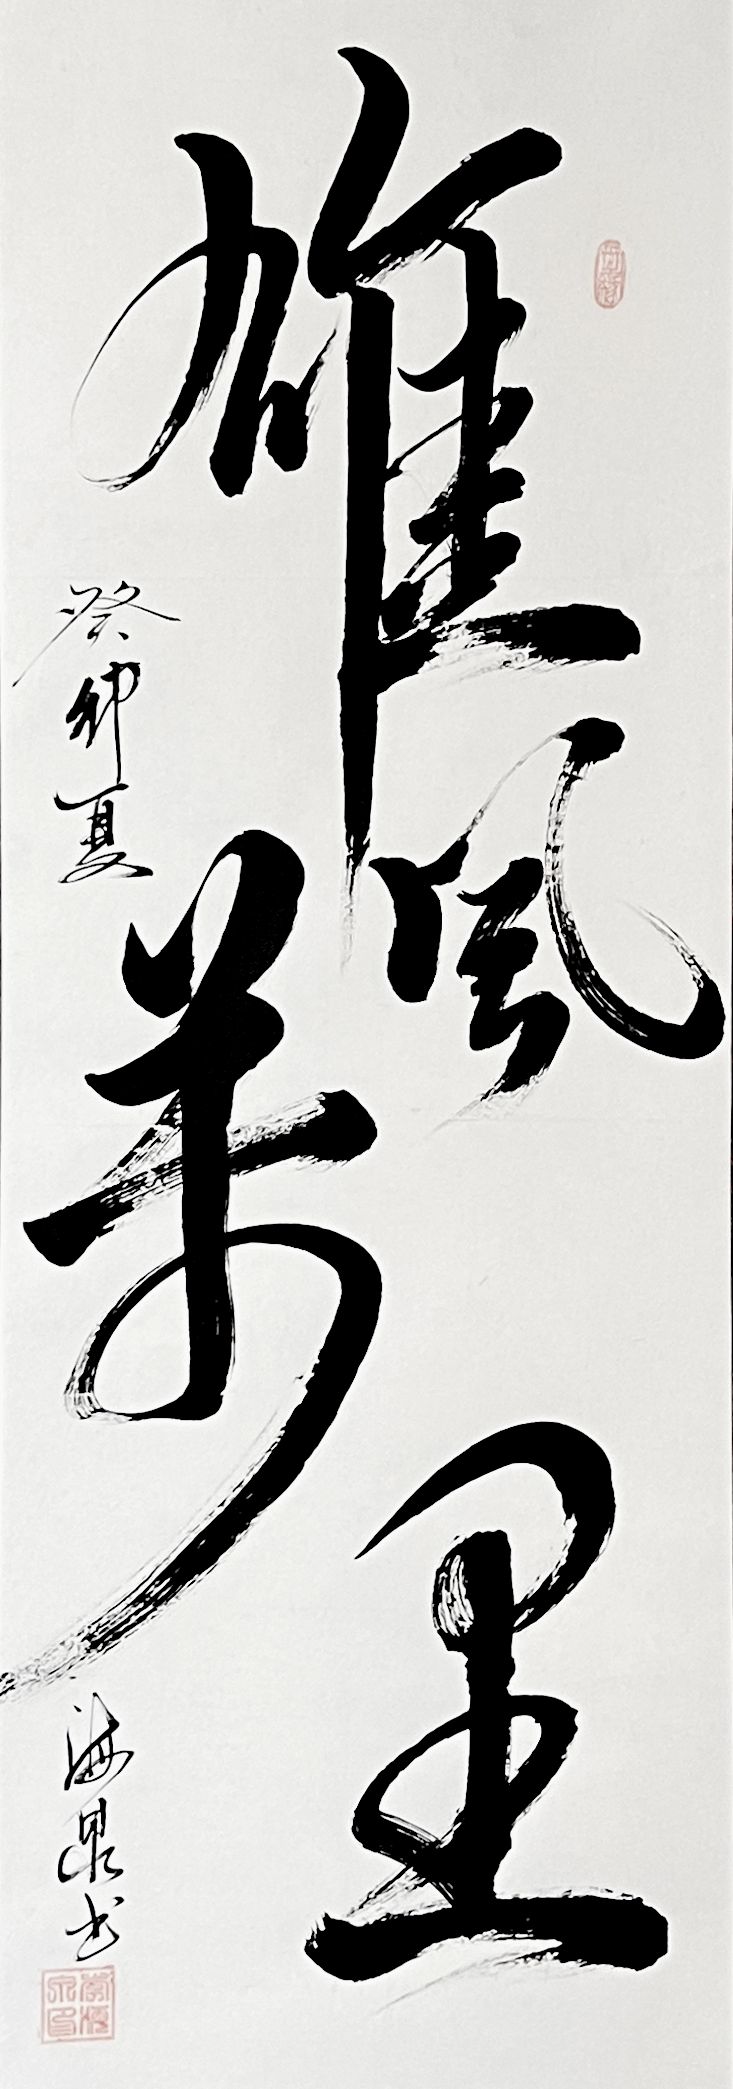 雄風萬里
癸卯夏
海泉书